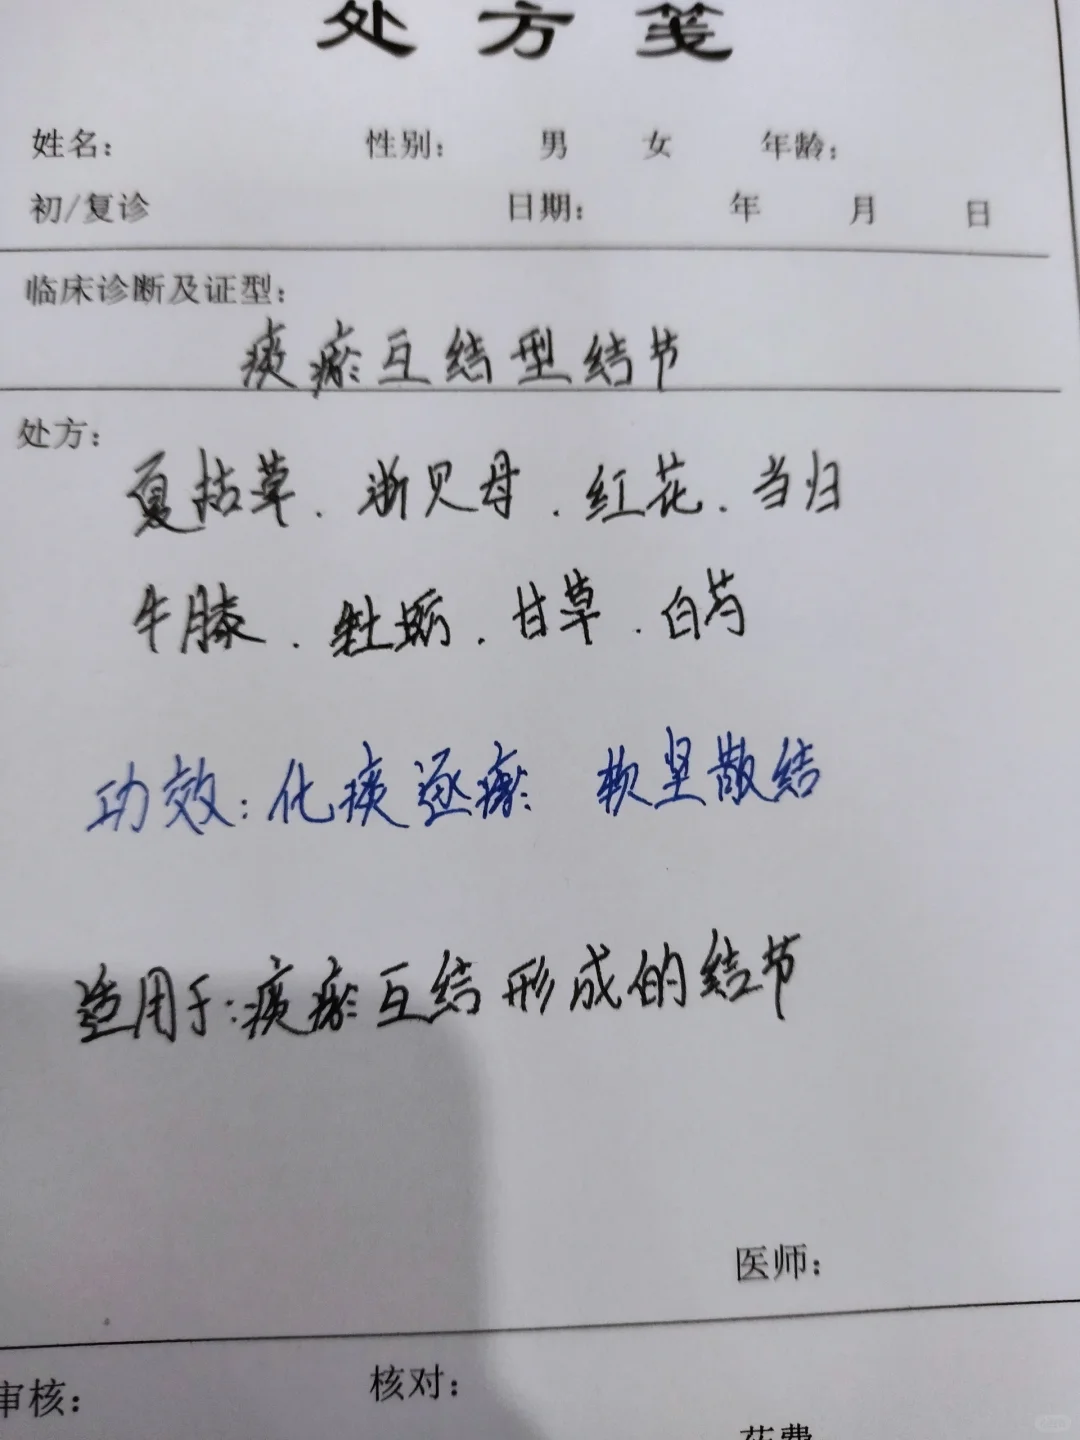 处方笺
姓名： 性别： 男 女 年龄：
初/复诊 日期： 年 月 日
临床诊断及证型：
痰瘀互结型结节
处方：
夏枯草．浙贝母．红花．当归
牛膝．牡蛎．甘草．白芍
功效：化痰逐瘀 软坚散结
适用于：痰瘀互结形成的结节
医师：
审核： 核对：
药费